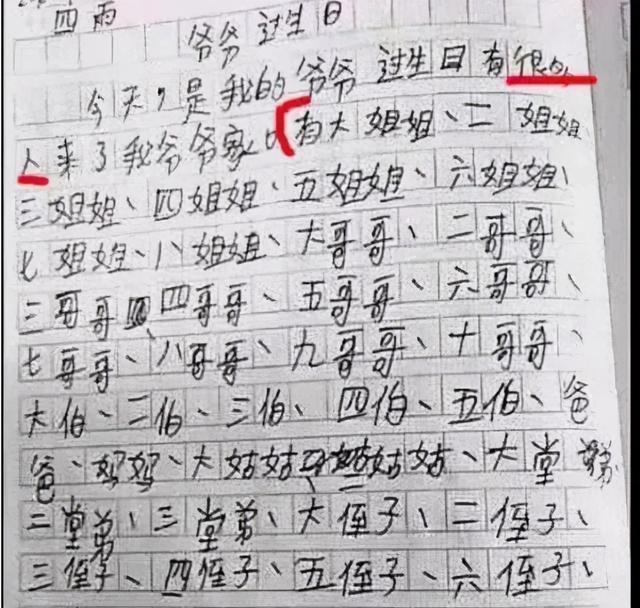 四雨
爷爷过生日
今天，是我的爷爷过生日有很多
人来了我爷爷家。有大姐姐、二姐姐、
三姐姐、四姐姐、五姐姐、六姐姐、
七姐姐、八姐姐、大哥哥、二哥哥、
三哥哥、四哥哥、五哥哥、六哥哥、
七哥哥、八哥哥、九哥哥、十哥哥、
大伯、二伯、三伯、四伯、五伯、爸
爸、妈妈、大姑姑、二姑姑、大堂弟
二堂弟、三堂弟、大侄子、二侄子、
三侄子、四侄子、五侄子、六侄子、